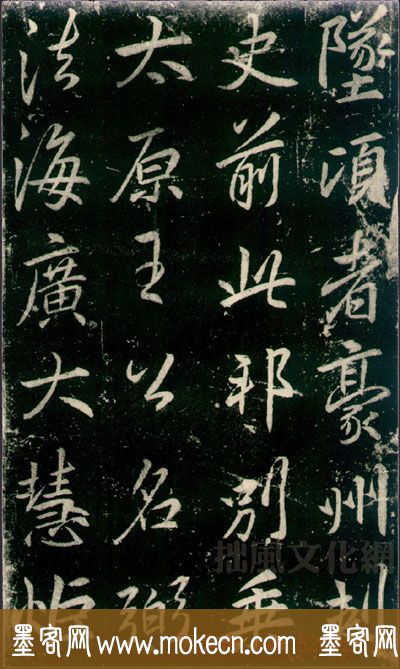 墜項者豪州刺
史前此邦別乘
太原王公名弼
法海廣大慧
拙風文化網
墨客网 www.mokecn.com 墨客网